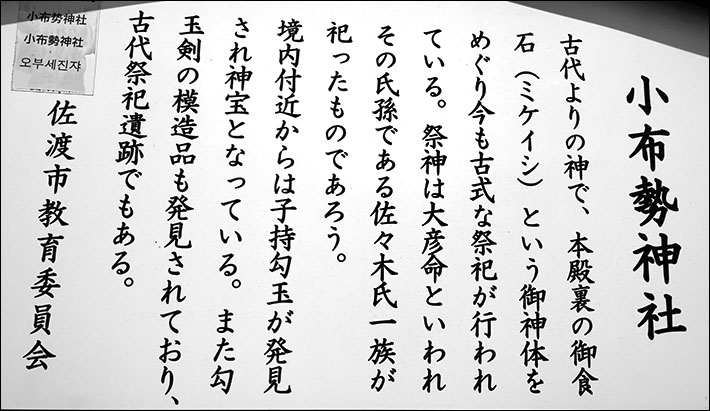 小布勢神社
古代よりの神で、本殿裏の御食
石（ミケイシ）という御神体を
めぐり今も古式な祭祀が行われ
ている。祭神は大彦命といわれ
その氏孫である佐々木氏一族が
祀ったものであろう。
境内付近からは子持勾玉が発見
され神宝となっている。また勾
玉剣の模造品も発見されており、
古代祭祀遺跡でもある。
佐渡市教育委員会
小布势神社
小布勢神社
오부세진쟈